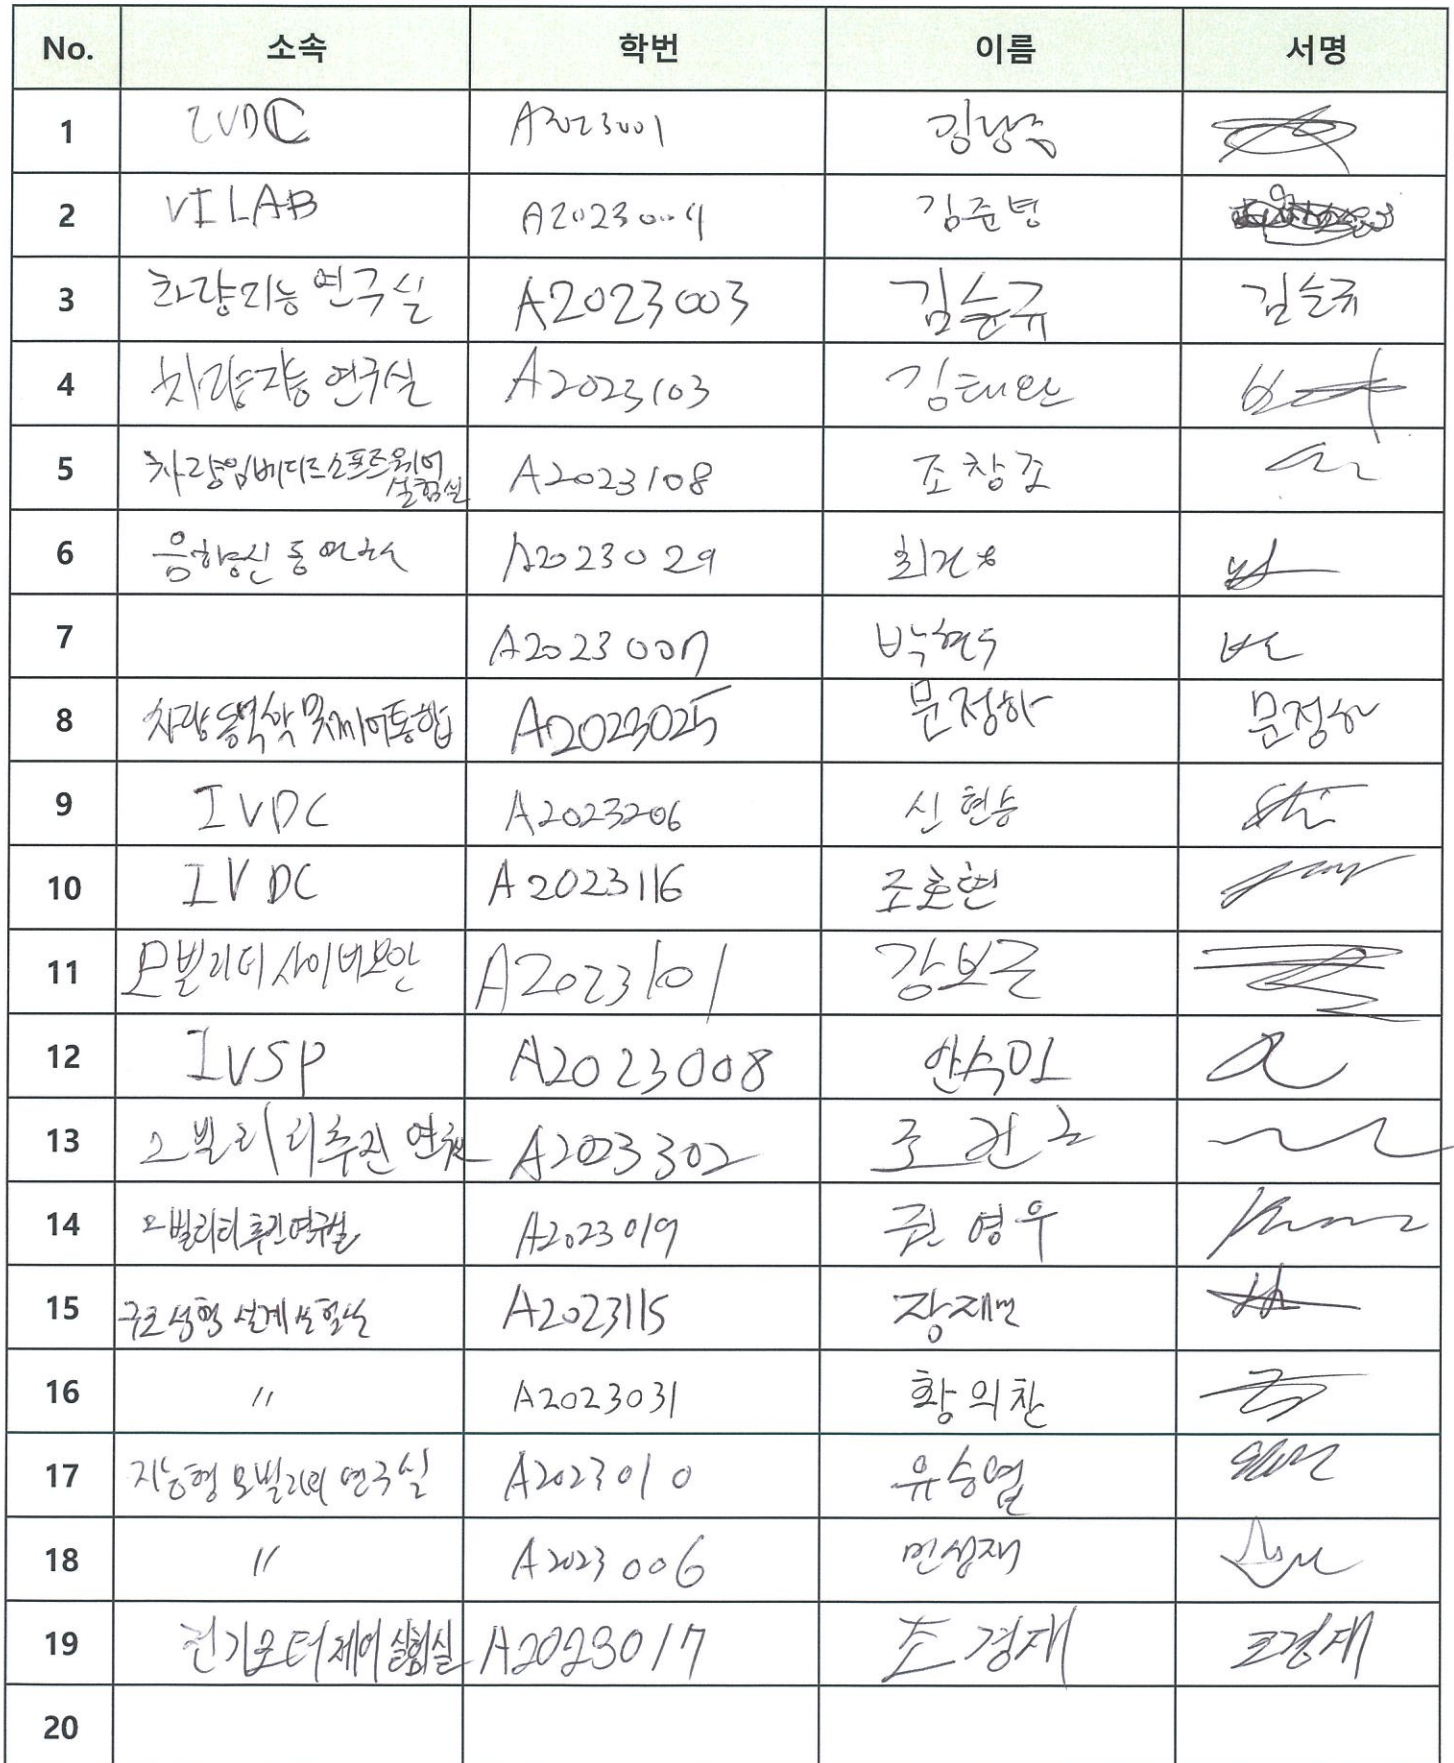 No. 소속 학번 이름 서명
1 IVDC A2023001
2 VILAB A2023004 김준병
3 차량지능 연구실 A2023003 김승규 김승규
4 차량지능 연구실 A2023103 김태완
5 차량임베디드소프트웨어 A2023108 조창조
실험실
6 음향진동 연구실 A2023029 최건웅
7 A2023007 박현수
8 차량동역학 및 제어통합 A2023025 문정하 문정하
9 IVDC A2023206 신현승
10 IVDC A2023116 조호현
11 모빌리티 사이버보안 A2023101 강보근
12 IVSP A2023008 안수민
13 모빌리티추진 연구실 A2023302 조건근
14 모빌리티추진연구실 A2023019 권영우
15 구조성형 설계실험실 A2023115 장재민
16 〃 A2023031 황의찬
17 지능형 모빌리티 연구실 A2023010 유승엽
18 〃 A2023006 민성재
19 전기모터제어실험실 A2023017 조경재 조경재
20